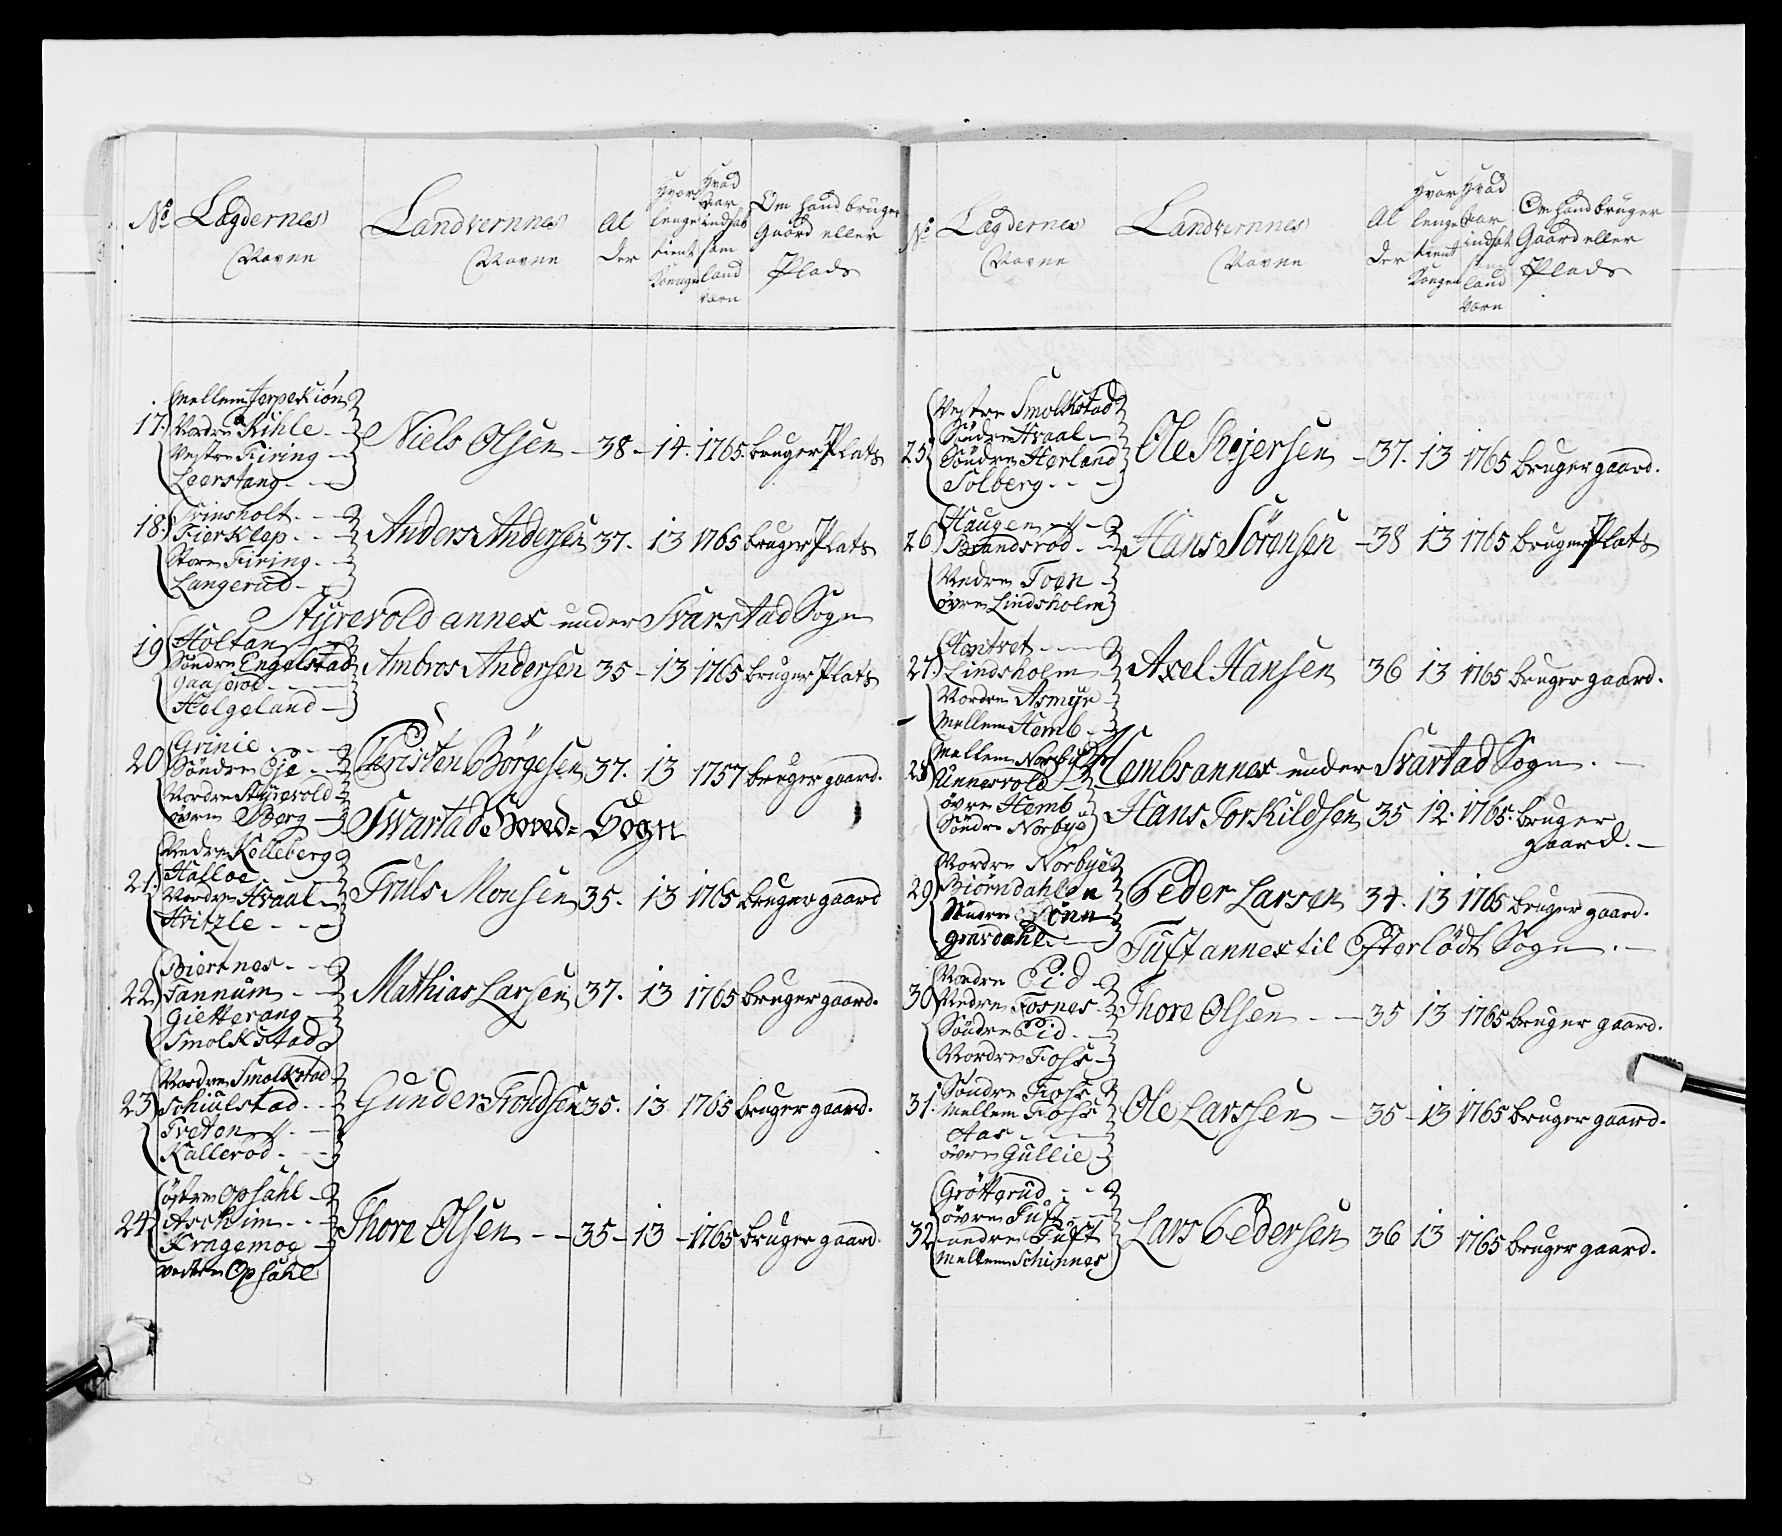 No Lægdernes Navne
Landvernnes Navne
Alder
Hvor lenge tient Kongen
Hvad Aar indsat som land værn
Om hand bruger Gaard eller Plads
17. Mellem Jerpekiøn
Nordre Kihle
Vestre Firing
Leerstang
Niels Olsen 38 14. 1765. bruger Plats
18. Trinsholt
Fierklep
Store Firing
Langerud
Anders Andersen 37. 13 1765 bruger Plats
Styrevold annex under Svarstad Sogn
19 Holtan
Søndre Engelstad
Gaaserød
Helgeland
Ambros Andersen 35 13 1765 bruger Plats
20 Grinie
Søndre Eje
Nordre Styrevold
øvre Berg
Christen Börgesen 37. 13 1757 bruger gaard.
Svartad Hoved-Sogn
21. Nedre Kolleberg
Halloe
Nordre Hvaal
Hvitzle
Truls Monsen 35. 13 1765 bruger gaard
22 Biertnes
Tannum
Gietterang
Smolkstad
Mathias Larsen 37. 13 1765 bruger gaard.
23 Nordre Smolkstad
Schiulstad
Tveton
Kallerød
Gunder Trondsen 35. 13 1765 bruger gaard.
24 østre Opsahl
Aschim
Kragemoe
vestre Opsahl
Thore Olsen 35 13 1765 bruger gaard.
No Lægdernes Navne
Landvernnes Navne
Alder
Hvor lenge tient Kongen
Hvad Aar indsat som land værn
Om hand bruger Gaard eller Plads
25 Vestre Smolkstad
Søndre Hvaal
Søndre Herland
Solberg
Ole Rejersen 37. 13 1765 bruger gaard.
26 Haugen
Brandsrød
Nedre Foen
øvre Lindsholm
Hans Sörensen 38 13 1765 bruger Plats
27. Hontvet
Lindsholm
Nordre Asmyr
Mellem Hemb
Axel Hansen 36 13 1765 bruger gaard.
Hembs annex under Svartad Sogn.
28 Mellem Norbye
Unnesvold
øvre Hemb
Søndre Norbye
Hans Torkildsen 35 12. 1765. bruger gaard.
29 Nordre Norbye
Biørndahlen
Søndre Lønn
Grøsdahl
Peder Larsen 34. 13 1765 bruger gaard.
Tuft annex til Efterlödt Sogn.
30 Nordre Eid
Nedre Fosnes
Søndre Eid
Nordre Fohs
Thore Olsen 35 13 1765 bruger gaard.
31. Søndre Fohs
Mellem Fohs
Aas
øvre Gullie
Ole Larssen 35 13 1765 bruger gaard.
32 Grøtterud
øvre Tuft
nedre Tuft
Mellem Schinnes
Lars Pedersen 36 13 1765 bruger gaard.